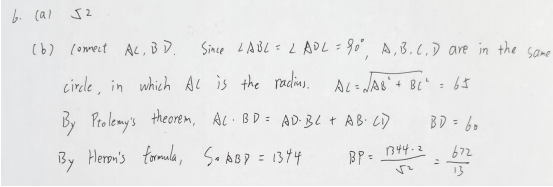 6. (a) 52
(b) Connect AC, BD. Since ∠ABC = ∠ADC = 90°, A, B, C, D are in the same
circle, in which AC is the radius. AC = √(AB² + BC²) = 65
By Ptolemy's theorem, AC · BD = AD · BC + AB · CD BD = 60
By Heron's formula, S△ABD = 1344 BP = 1344·2/52 = 672/13